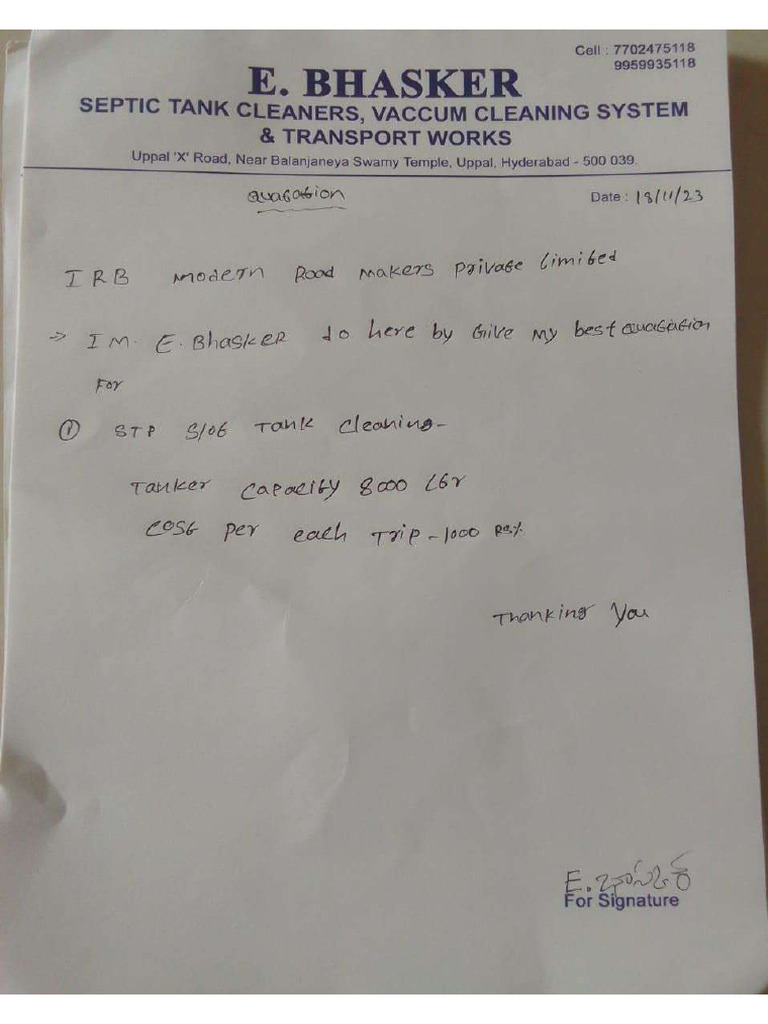 Cell : 7702475118
9959935118
E. BHASKER
SEPTIC TANK CLEANERS, VACCUM CLEANING SYSTEM
& TRANSPORT WORKS
Uppal 'X' Road, Near Balanjaneya Swamy Temple, Uppal, Hyderabad - 500 039.
Quatation
Date : 18/11/23
IRB Modern Road Makers Private Limited
→ I M. E. Bhasker do here by Give My best Quatation
For
① STP Slot Tank Cleaning-
Tanker Capacity 8000 Ltr
Cost Per each Trip - 1000 Rs%
Thanking You
E. భాస్కర్
For Signature